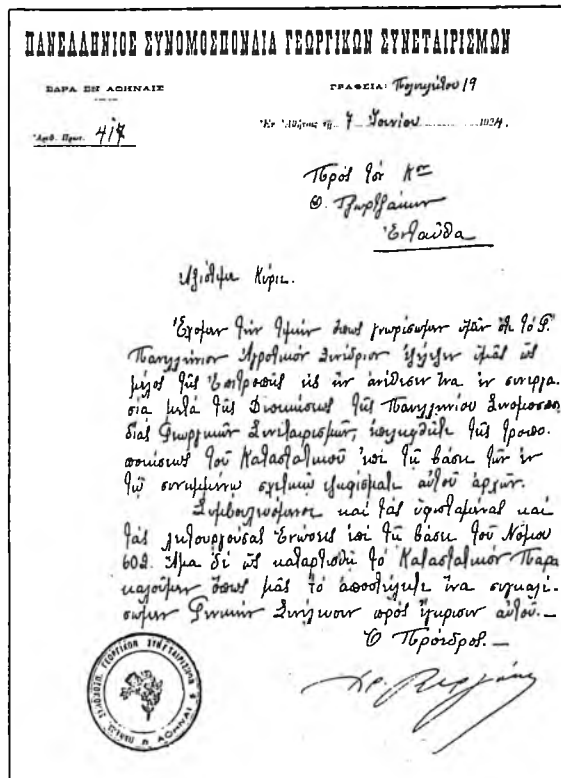 ΠΑΝΕΛΛΗΝΙΟΣ ΣΥΝΟΜΟΣΠΟΝΔΙΑ ΓΕΩΡΓΙΚΩΝ ΣΥΝΕΤΑΙΡΙΣΜΩΝ
ΕΔΡΑ ΕΝ ΑΘΗΝΑΙΣ
ΓΡΑΦΕΙΑ: Πολυκλείτου 19
Ἀριθ. Πρωτ. 417
Ἐν Ἀθήναις τῇ 7 Ἰουνίου 1924.
Πρὸς τὸν Κον
Θ. Τζωρτζάκην
Ἐνταῦθα
Ἀξιότιμε Κύριε.
Ἔχομεν τὴν τιμὴν ὅπως γνωρίσωμεν ὑμῖν ὅτι τὸ
Πανελλήνιον Ἀγροτικὸν Συνέδριον ἐξέλεξεν ὑμᾶς ὡς
μέλος τῆς Ἐπιτροπῆς εἰς ἣν ἀνέθεσεν ἵνα ἐν συνεργα-
σίᾳ μετὰ τῆς Διοικήσεως τῆς Πανελληνίου Συνομοσπον
δίας Γεωργικῶν Συνεταιρισμῶν, ἐπιληφθῆτε τῆς τροπο-
ποιήσεως τοῦ Καταστατικοῦ ἐπὶ τῇ βάσει τῶν ἐν
τῷ συνημμένῳ σχετικῷ ψηφίσματι αὐτοῦ ἀρχῶν.
Συμβουλευόμενοι καὶ τὰς ὑφισταμένας καὶ
τὰς λειτουργούσας Ἑνώσεις ἐπὶ τῇ βάσει τοῦ Νόμου
602. Ἅμα δὲ ὡς καταρτισθῇ τὸ Καταστατικὸν Παρα
καλοῦμεν ὅπως μᾶς τὸ ἀποστείλητε ἵνα συγκαλέ-
σωμεν Γενικὴν Συνέλευσιν πρὸς ἔγκρισιν αὐτοῦ.—
Ὁ Πρόεδρος.—
ΓΕΩΡΓΙΚΩΝ ΣΥΝΕΤΑΙΡΙΣΜΩΝ
ΑΘΗΝΑΙ